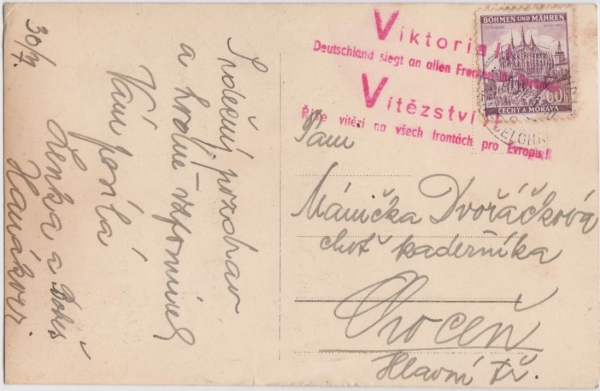 30/7.
Srdečný pozdrav
a hodně vzpomínek
Vám posílá
Lenka a
Hanákovi.
Viktoria!
Deutschland siegt an allen Fronten für Europa!
Vítězství!
Říše vítězí na všech frontách pro Evropu!
BÖHMEN UND MÄHREN
60
ČECHY A MORAVA
Paní
Mánička Dvořáčková
choť kadeřníka
Choceň
Hlavní tř.